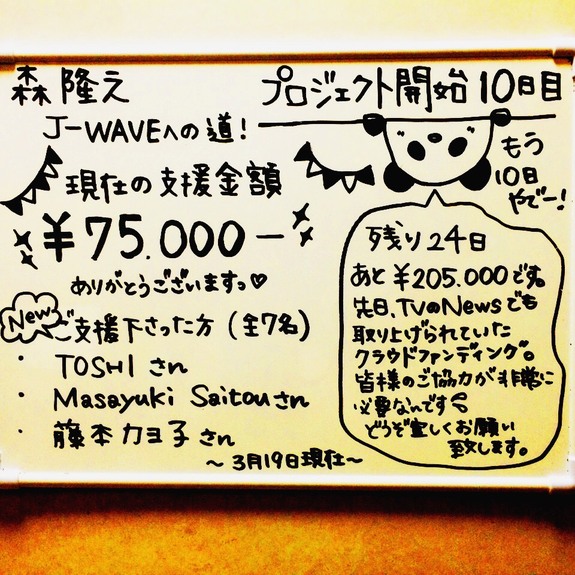 森 隆え
プロジェクト開始 10日目
J-WAVEへの道!
もう
10日
やでー!
現在の支援金額
¥75.000-
ありがとうございますっ♡
New
ご支援下さった方 (全7名)
・ TOSHI さん
・ Masayuki Saitou さん
・ 藤本カヨ子さん
~3月19日現在~
残り24日
あと ¥205.000です。
先日、TVのNewsでも
取り上げられていた
クラウドファンディング。
皆様のご協力が非常に
必要なんです
どうぞ宜しくお願い
致します。